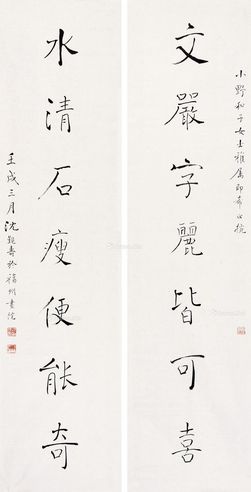 小野和子女士雅属即希正捥
文嚴字麗皆可喜
水清石瘦便能奇
壬戌三月沈覲壽於福州書院